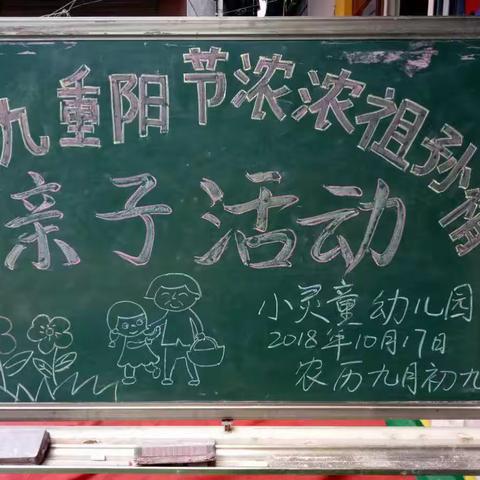 九重阳节浓浓祖孙情
亲子活动
小灵童幼儿园
2018年10月17日
农历九月初九